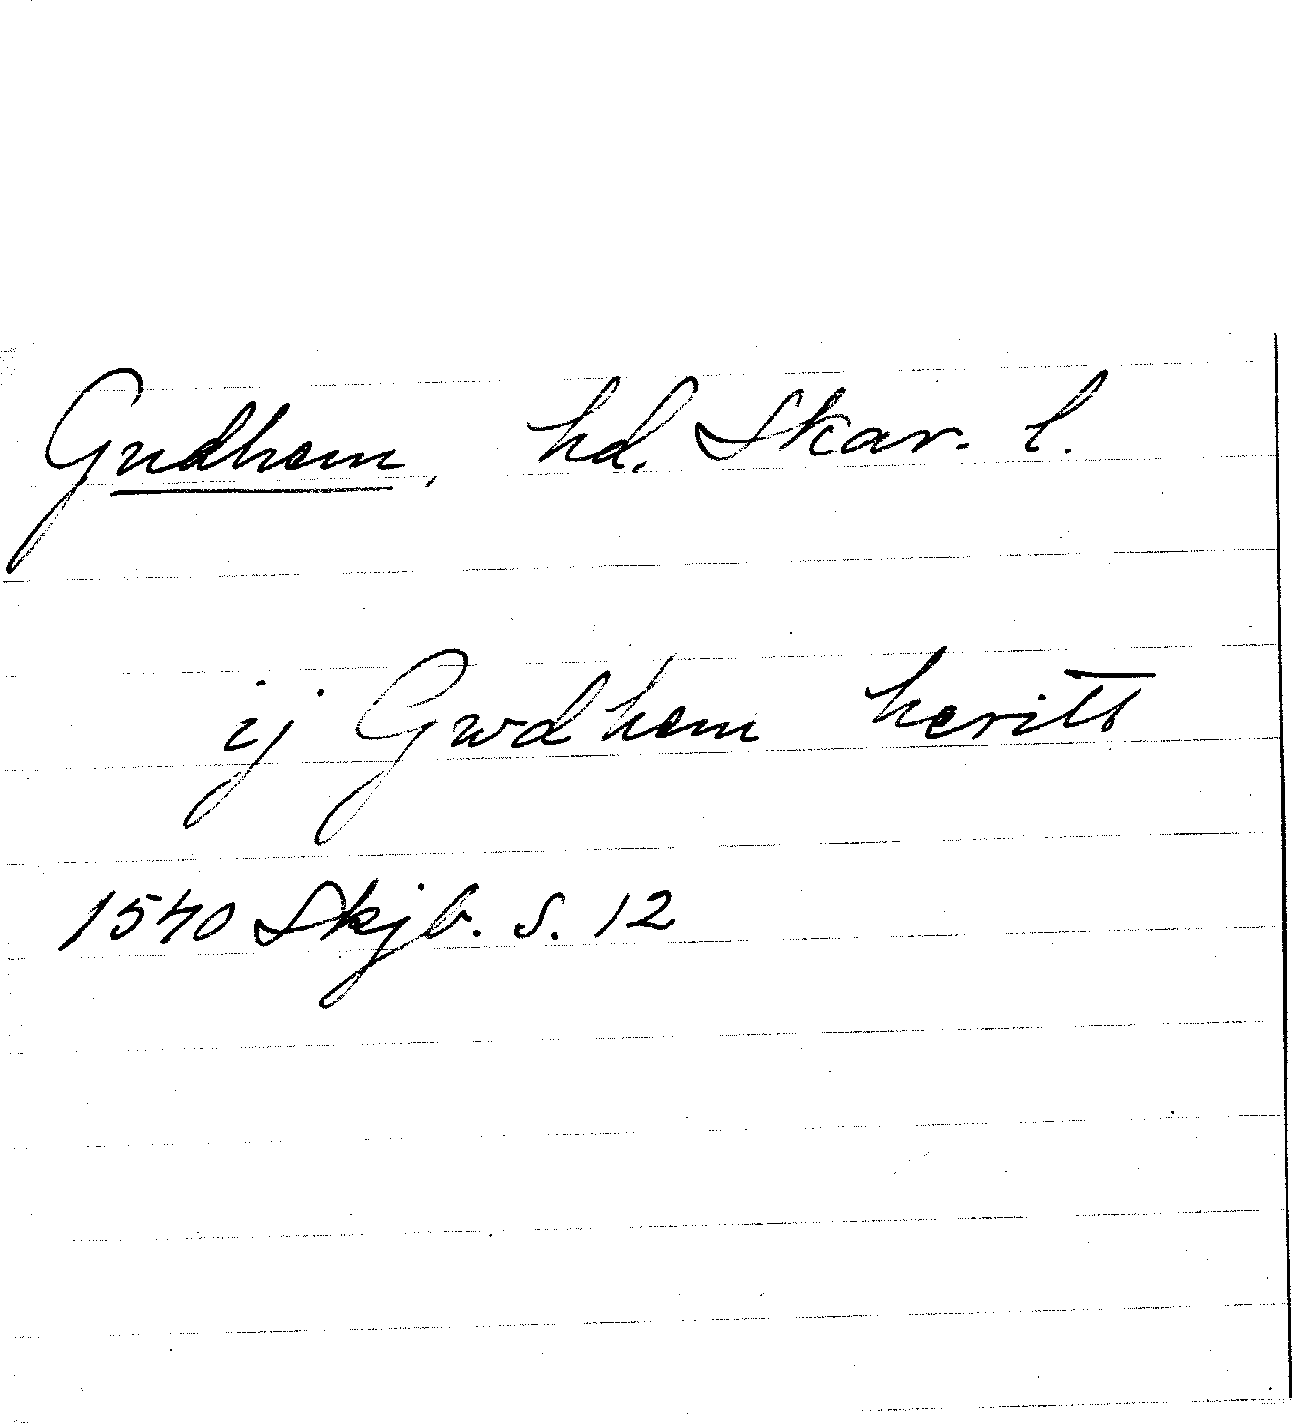 Gudhem, hd. Skar. l.
ij Gwdhem heritt
1540 Skjb. s. 12